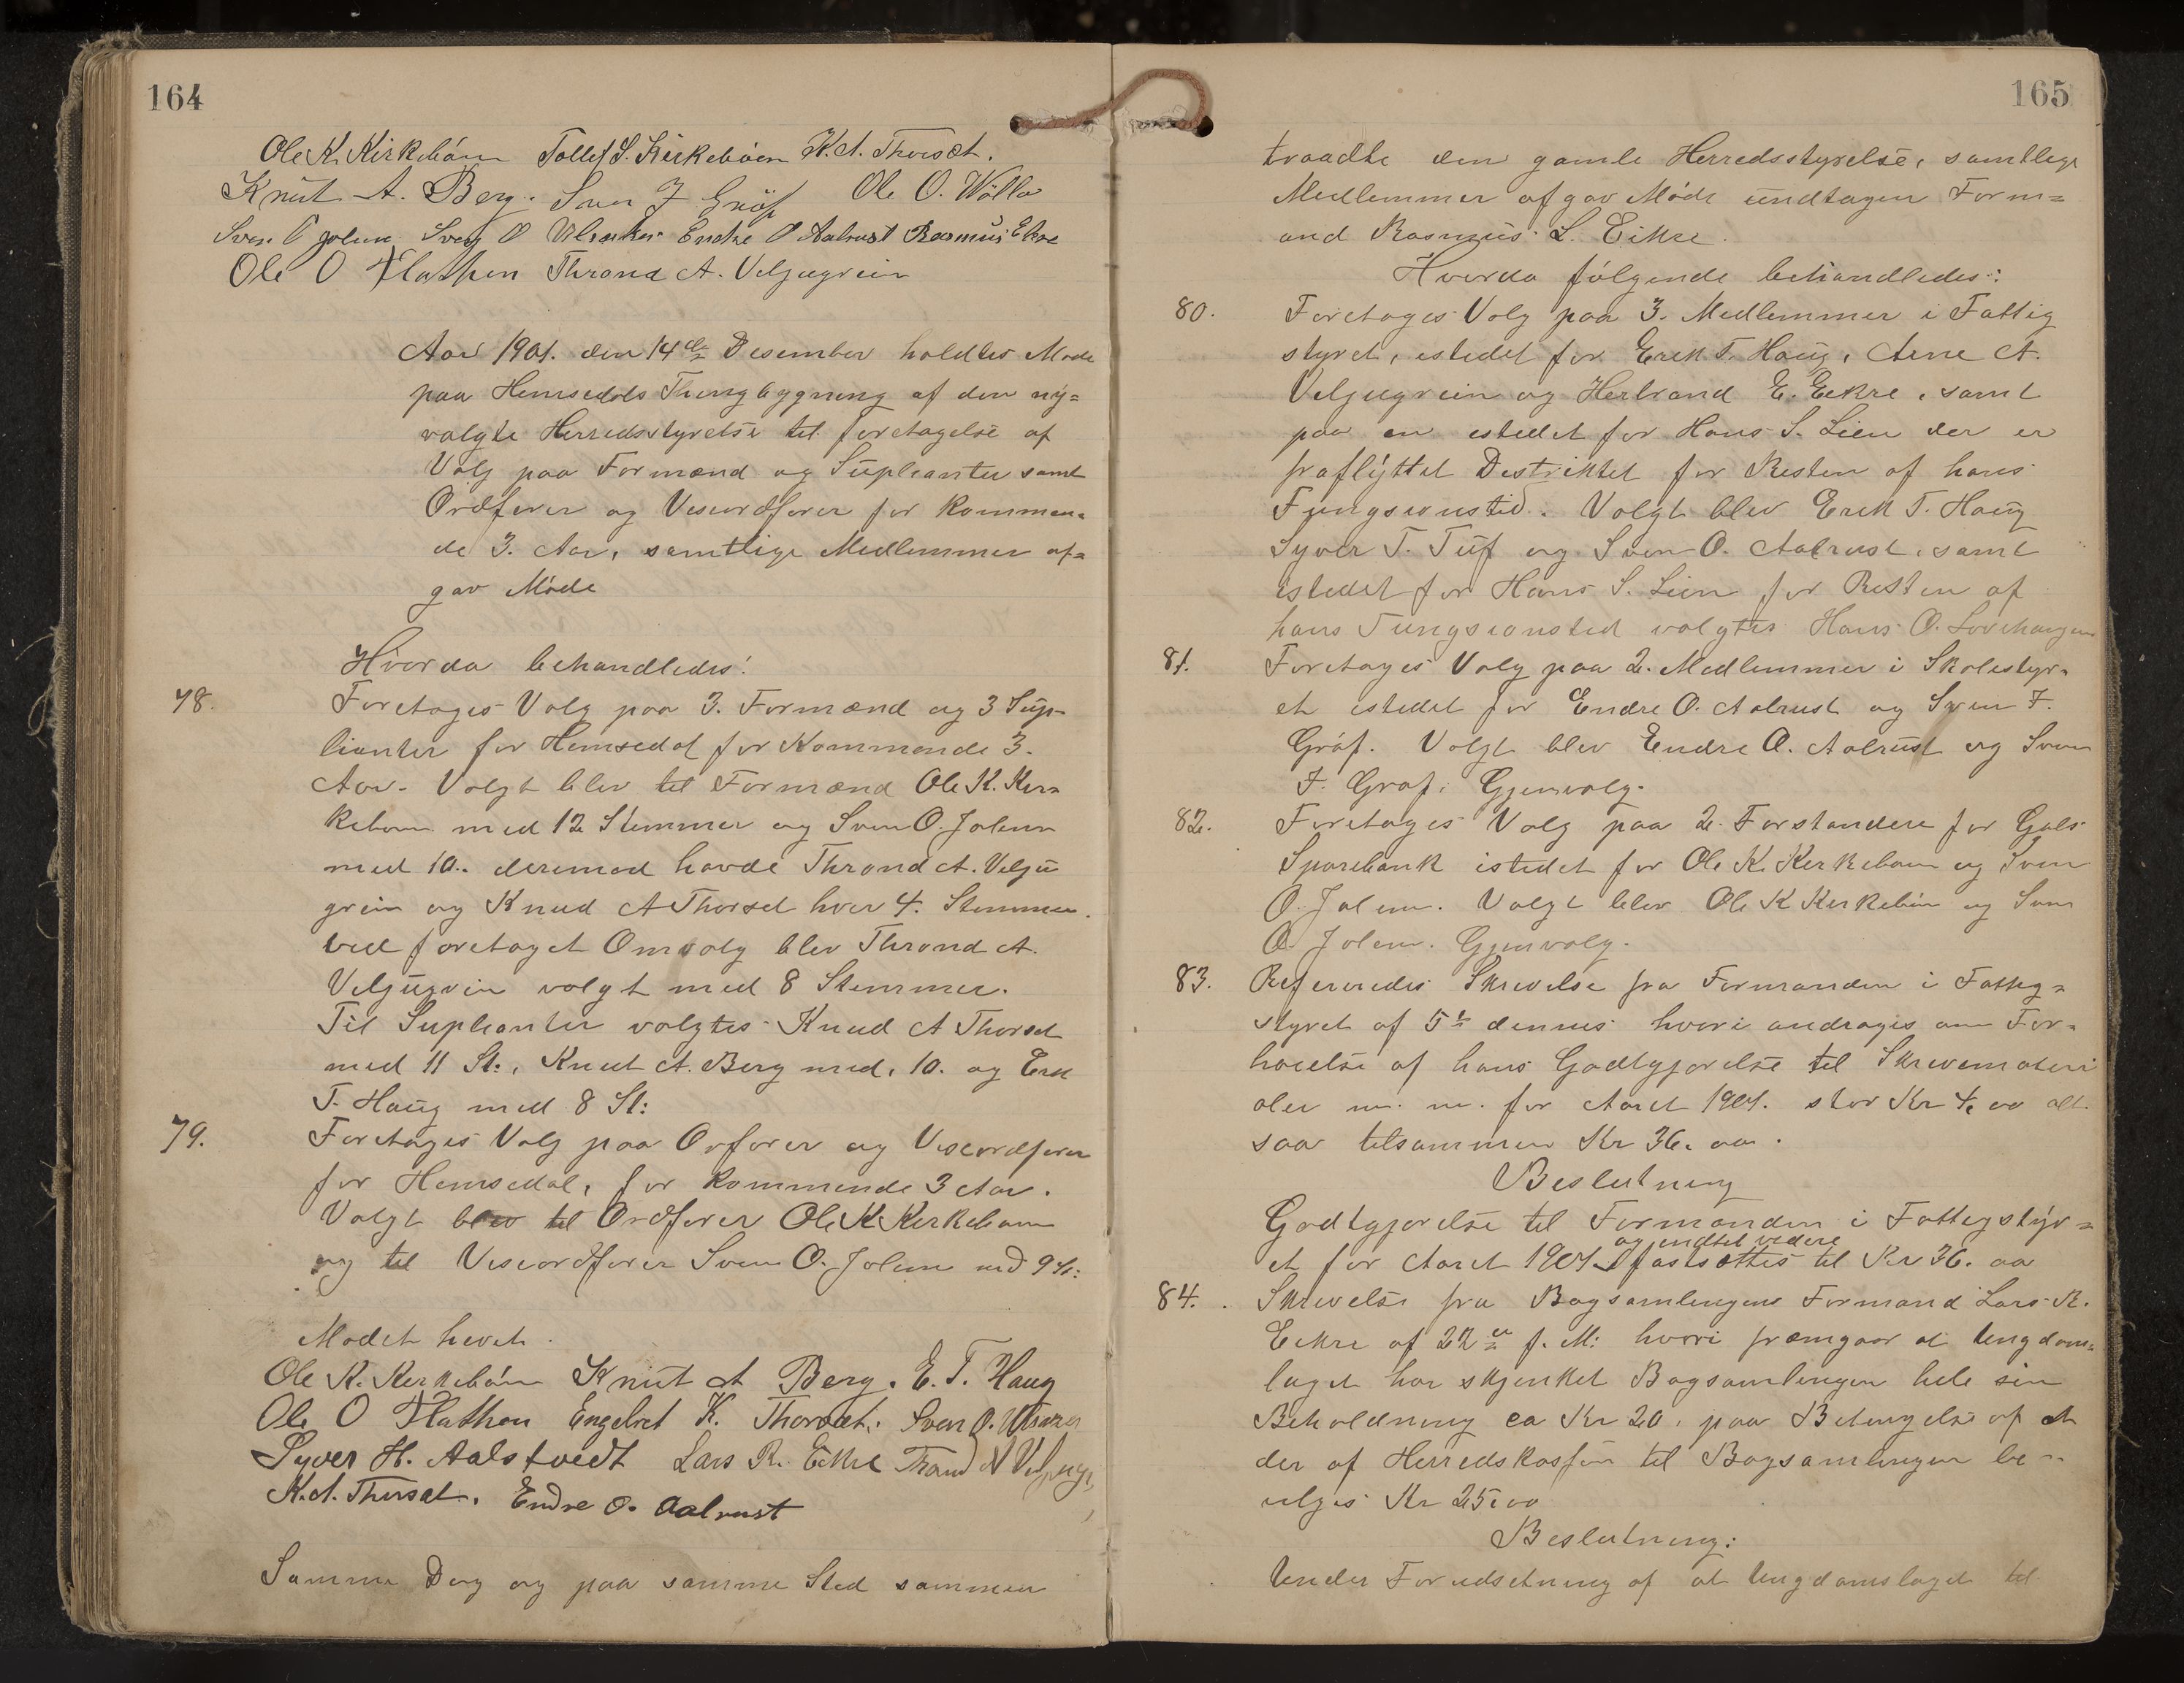 164
Ole K. Kirkebøen Tollef S. Kirkebøen K. A. Thorset.
Knut A. Berg. Sven F Grøf Ole O. Wøllo
Sven O Jolun Sven O Ulsaker Endre O Aalrust Rasmus Ekre
Ole O Flathen Thrond A. Veljugrein
Aar 1901. den 14de Desember holdtes Møde
paa Hemsedals Thingbygning af den ny=
valgte Herredsstyrelse til foretagelse af
Valg paa Formænd og Supleanter samt
Ordfører og Viseordfører for Kommen=
de 3. Aar, samtlige Medlemmer af=
gav Møde
Hvorda behandledes:
78. Foretages Valg paa 3. Formænd og 3 Sup=
lianter for Hemsedal for Kommende 3.
Aar. Valgt blev til Formænd Ole K. Kir=
keboen med 12 Stemmer og Sven O. Jolun
med 10.. derimod havde Thrond A. Velju
grein og Knud A Thorset hver 4. Stemmer.
ved foretaget Omvalg blev Thrond A.
Veljugrein valgt med 8 Stemmer.
Til Supleanter valgtes Knud A Thorset
med 11 St:, Knut A. Berg med, 10. og Erik
T. Haug med 8 St:
79. Foretages Valg paa Orforer og Viseordfører
for Hemsedal, for kommende 3 Aar.
Valgt blev til Ordfører Ole K Kirkeboen
og til Viseordfører Sven O. Jolun med 9 St:
Modet hevet.
Ole K. Kirkebøen Knut A Berg. E. T. Haug
Ole O Flathen Engebret K. Thorset. Sven O. Ulsaker
Syver H. Aalstvedt Lars R. Ekre Trond A Veljugr,
K. A. Thorset. Endre O. Aalrust
Samme Dag og paa samme Sted sammen
165
traadte den gamle Herredsstyrelse, samtlige
Medlemmer afgav Møde undtagen Form=
and Rasmus L. Eikre.
Hvorda følgende behandledes:
80. Foretages Valg paa 3. Medlemmer i Fattig
styret, istedet for Erik T. Haug, Arne A.
Veljugrein og Herbrand E. Eekre, samt
paa en istedet for Hans S. Lien der er
fraflyttet Destriktet for Resten af hans
Fungsionstid. Valgt blev Erik T. Haug
Syver T. Tuf og Sven O. Aalrust, samt
istedet for Hans S. Lien for Resten af
hans Fungsionstid valgtes Hans O.
81. Foretages Valg paa 2. Medlemmer i Skolestyr=
et istedet for Endre O. Aalrust og Sven F.
Grøf. Valgt blev Endre O. Aalrust og Sven
F. Grøf. Gjenvalg.
82. Foretages Valg paa 2. Forstandere for Gols
Sparebank istedet for Ole K. Kirkeboen og Sven
O. Jolun. Valgt blev Ole K Kirkeboen og Sven
O. Jolun. Gjenvalg.
83. Refereredes Skrivelse fra Formanden i Fattig=
styret af 5te dennes hvori andrages om For=
høielse af hans Godtgjørelse til Skrivemateri
aler m. m. for Aaret 1901. stor Kr 4,00 alt
saa tilsammen Kr 36.00.
Beslutning
Godtgjørelse til Formanden i Fattigstyr=
et for Aaret 1901. og indtil videre fastsættes til Kr 36.00
84. Skrivelse fra Bogsamlingens Formand Lars R.
Eekre af 22de f. M: hvori fræmgaar at Ungdoms=
laget har skjenket Bogsamlingen hele sin
Beholdning ca Kr 20, paa Betingelse af at
der af Herredskassen til Bogsamlingen be=
vilges Kr 25,00
Beslutning:
Under Forudsetning af at Ungdomslaget til